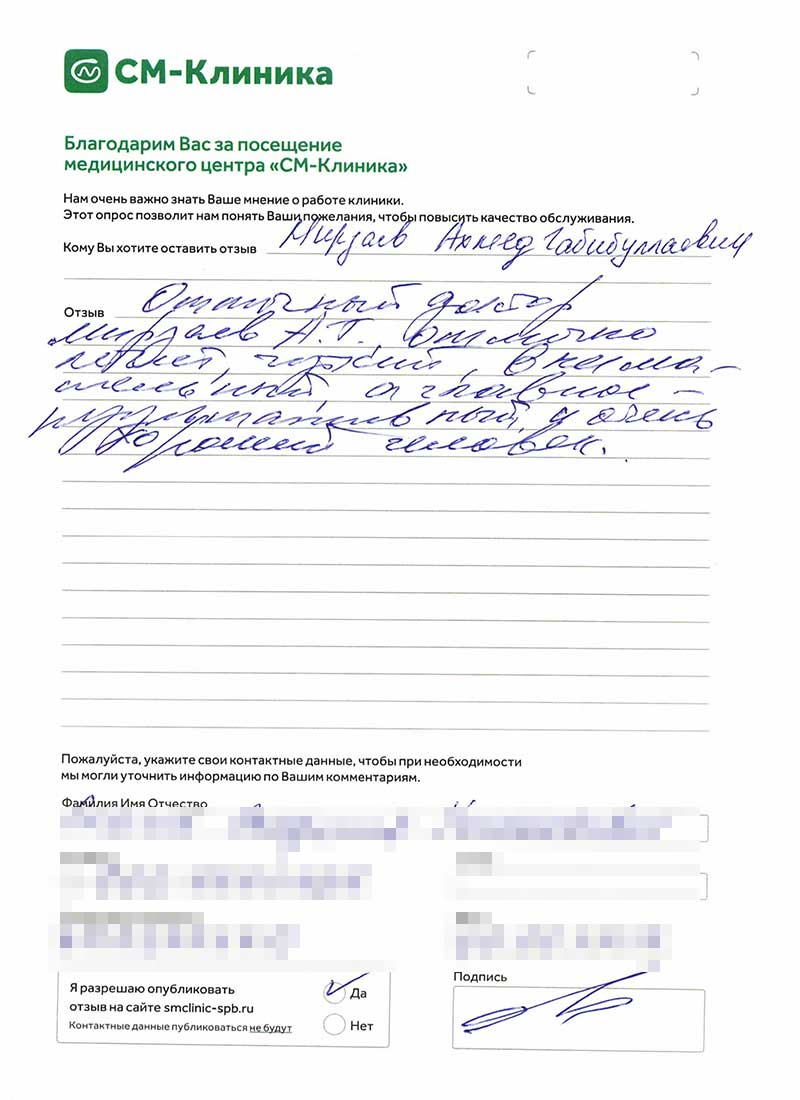 СМ-Клиника
Благодарим Вас за посещение
медицинского центра «СМ-Клиника»
Нам очень важно знать Ваше мнение о работе клиники.
Этот опрос позволит нам понять Ваши пожелания, чтобы повысить качество обслуживания.
Кому Вы хотите оставить отзыв Мирзаев Ахмед Габибуллаевич
Отзыв Отличный доктор
Мирзаев А.Г., отлично
лечит, чуткий, внима-
тельный, а главное -
результативный и очень
хороший человек.
Пожалуйста, укажите свои контактные данные, чтобы при необходимости
мы могли уточнить информацию по Вашим комментариям.
Фамилия Имя Отчество
Я разрешаю опубликовать
отзыв на сайте smclinic-spb.ru
Контактные данные публиковаться не будут
Да
Нет
Подпись